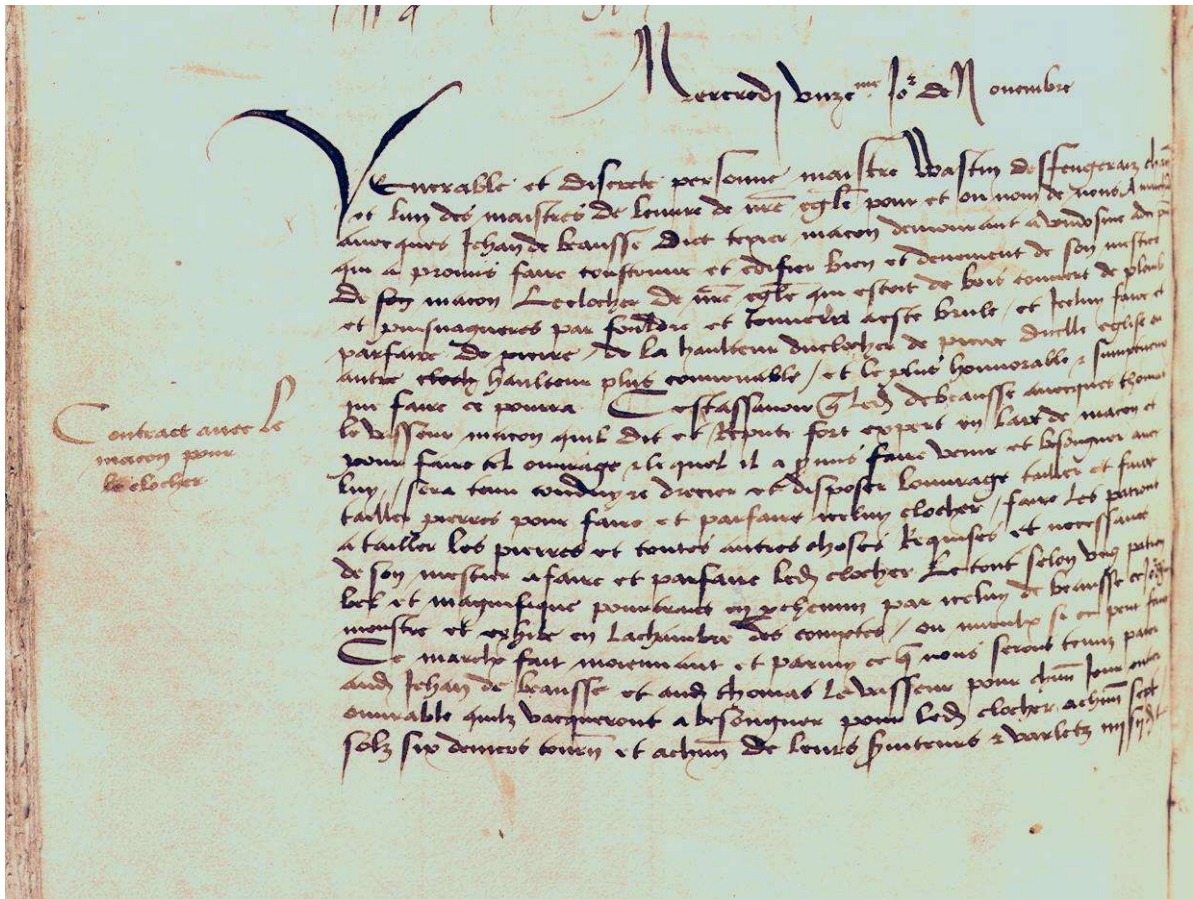 Mercredi unze^me Jo^r de Novembre
Venerable et discrete personne maistre Wastin desffengeraiz chan
et lun des maistres de leuvre de nre egle pour et ou nom de nous A marche
avecques Jehan de beausse dict texier macon demourant a vendosme ad ce pnt
qui a promis faire construire et edifier bien et deuement de son mestier
De son macon Le clocher de nre egle qui estoit de bois couvert de plomb
et puisnagueres par fouldre et tonnerre a este brule et Icelui faire et
parfaire De pierre de la haulteur du clocher de pierre dicelle eglise ou
autre haulteur plus convenable / et le plus honnorable & sumptueux
que faire ce pourra Cestassavoir q led de beausse avecques thomas
le vasseur macon quil dit et Repute fort expert en lart de macon et
pour faire tel ouvrage & lequel il a pmis faire venir et besongner avec
luy / sera tenu conduyre drecier et disposer louvrage tailler et faire
tailler pierres pour faire et parfaire icelui clocher / faire les patrons
a tailler les pierres et toutes autres choses Requises et necessaires
de son mestier a faire et parfaire led clocher Le tout selon ung patron
bel et magnifique pourtraict en pchemin par icelui de beausse ce Jourduy
monstre et exhibe en la chambre des comptes / ou mieulx si ce peut faire
Ce marche fait moiennant et parmy ce q nous serons tenuz paier
aud Jehan de beausse et aud thomas le vasseur pour chun Jour entier
ouvrable quilz vacqueront a besongner pour led clocher a chun sept
solz six deniers tourn et a chun de leurs s̃viteurs & varletz
Contract avec le
macon pour
le clocher